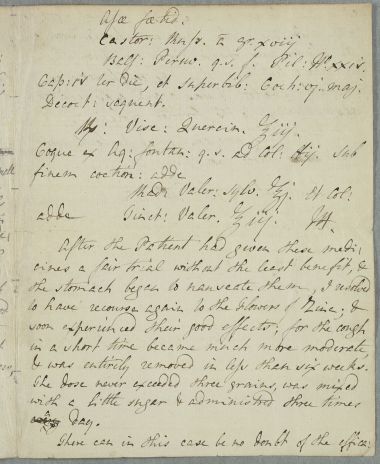 Asæ fœtid:
Castor: Russ. ā gr. xviij
Bals: Peruv. q.s. f. Pil: No xxiv.
Cap: iv ter die, et superbib: Coch: vj. maj.
Decoct: sequent.
Rx: Visc: Quercin. ℥iij.
Coque ex Aq: fontan: q.s. ad Col: sub
finem coction: adde
Rad: Valer: sylv. ℥j. Et Col:
adde Tinct: Valer. ℥iij.
After the Patient had given these medi-
cines a fair trial without the least benefit, &
the stomach began to nauseate them, I resolved
to have recourse again to the flowers of Zinc; &
soon experienced their good effects; for the cough
in a short time became much more moderate,
& was entirely removed in less than six weeks.
The dose never exceeded three grains, was mixed
with a little sugar & administred three times
day.
There can in this case be no doubt of the effica: